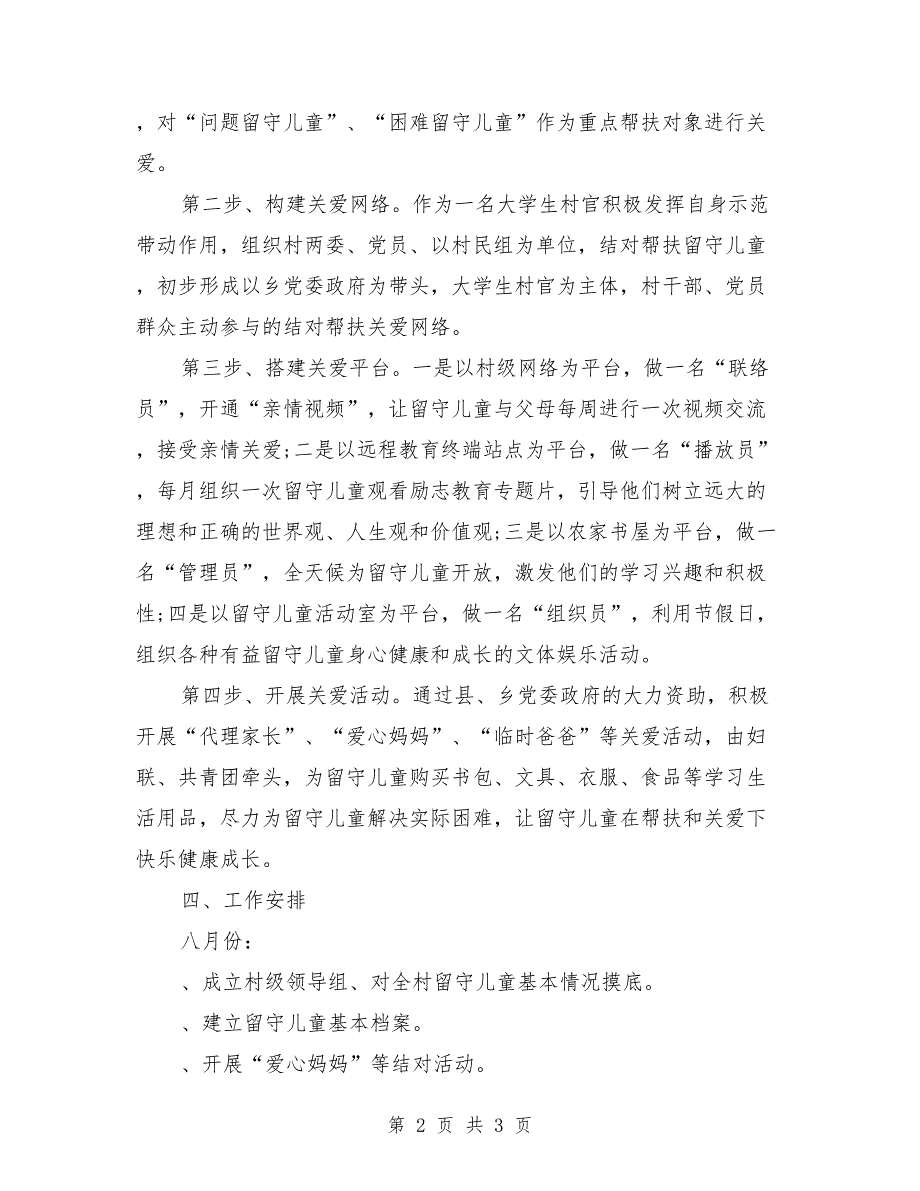 ，对“问题留守儿童”、“困难留守儿童”作为重点帮扶对象进行关
爱。
第二步、构建关爱网络。作为一名大学生村官积极发挥自身示范
带动作用，组织村两委、党员、以村民组为单位，结对帮扶留守儿童
，初步形成以乡党委政府为带头，大学生村官为主体，村干部、党员
群众主动参与的结对帮扶关爱网络。
第三步、搭建关爱平台。一是以村级网络为平台，做一名“联络
员”，开通“亲情视频”，让留守儿童与父母每周进行一次视频交流
，接受亲情关爱;二是以远程教育终端站点为平台，做一名“播放员”
，每月组织一次留守儿童观看励志教育专题片，引导他们树立远大的
理想和正确的世界观、人生观和价值观;三是以农家书屋为平台，做一
名“管理员”，全天候为留守儿童开放，激发他们的学习兴趣和积极
性;四是以留守儿童活动室为平台，做一名“组织员”，利用节假日，
组织各种有益留守儿童身心健康和成长的文体娱乐活动。
第四步、开展关爱活动。通过县、乡党委政府的大力资助，积极
开展“代理家长”、“爱心妈妈”、“临时爸爸”等关爱活动，由妇
联、共青团牵头，为留守儿童购买书包、文具、衣服、食品等学习生
活用品，尽力为留守儿童解决实际困难，让留守儿童在帮扶和关爱下
快乐健康成长。
四、工作安排
八月份：
、成立村级领导组、对全村留守儿童基本情况摸底。
、建立留守儿童基本档案。
、开展“爱心妈妈”等结对活动。
第 2 页 共 3 页